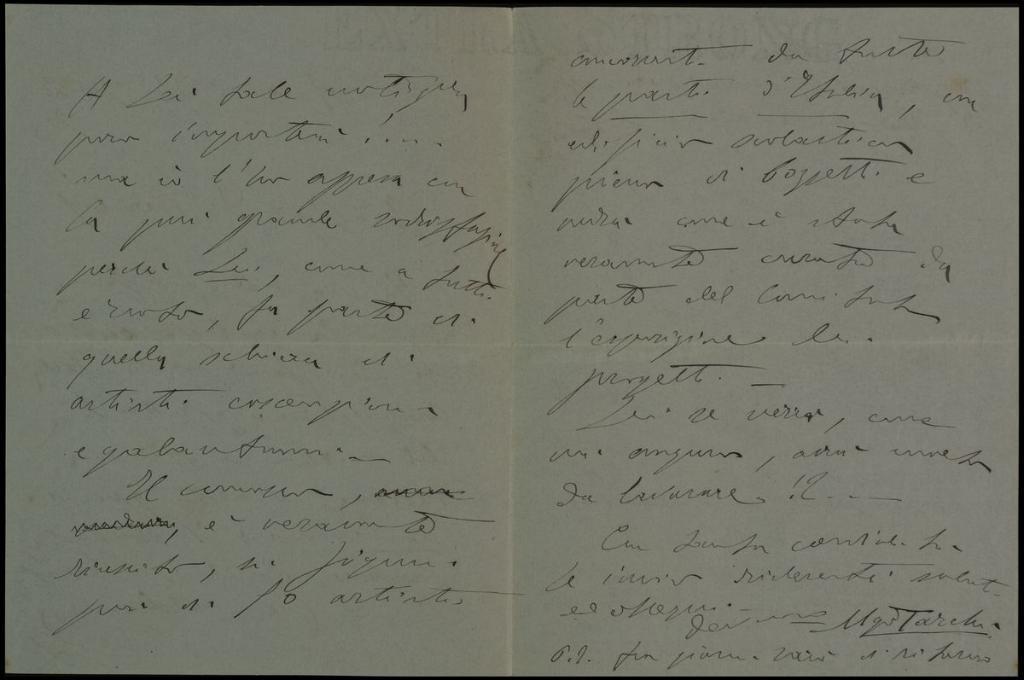 A Lei tale notizia
poco importerà!....
ma io l'ho appresa con
la più grande soddisfazione
perchè Lei, come a tutti
è noto, fa parte di
quella schiera di
artisti coscenziosi
e galantuomini. —
Il concorso,
è veramente
riuscito, si figuri
più di 70 artisti
concorrenti da tutte
le parti d'Italia, un
edificio scolastico
pieno di bozzetti e
come è stata
veramente curata da
parte del Comitato
l'esposizione dei
progetti. —
Lei se verrà, come
mi auguro, avrà molto
da lavorare!? — —
Con tanta cordialità
Le invio riverenti saluti
ed ossequi.
Dev. suo Ugo Tarchi.
P.S. fra giorni sarò di ritorno